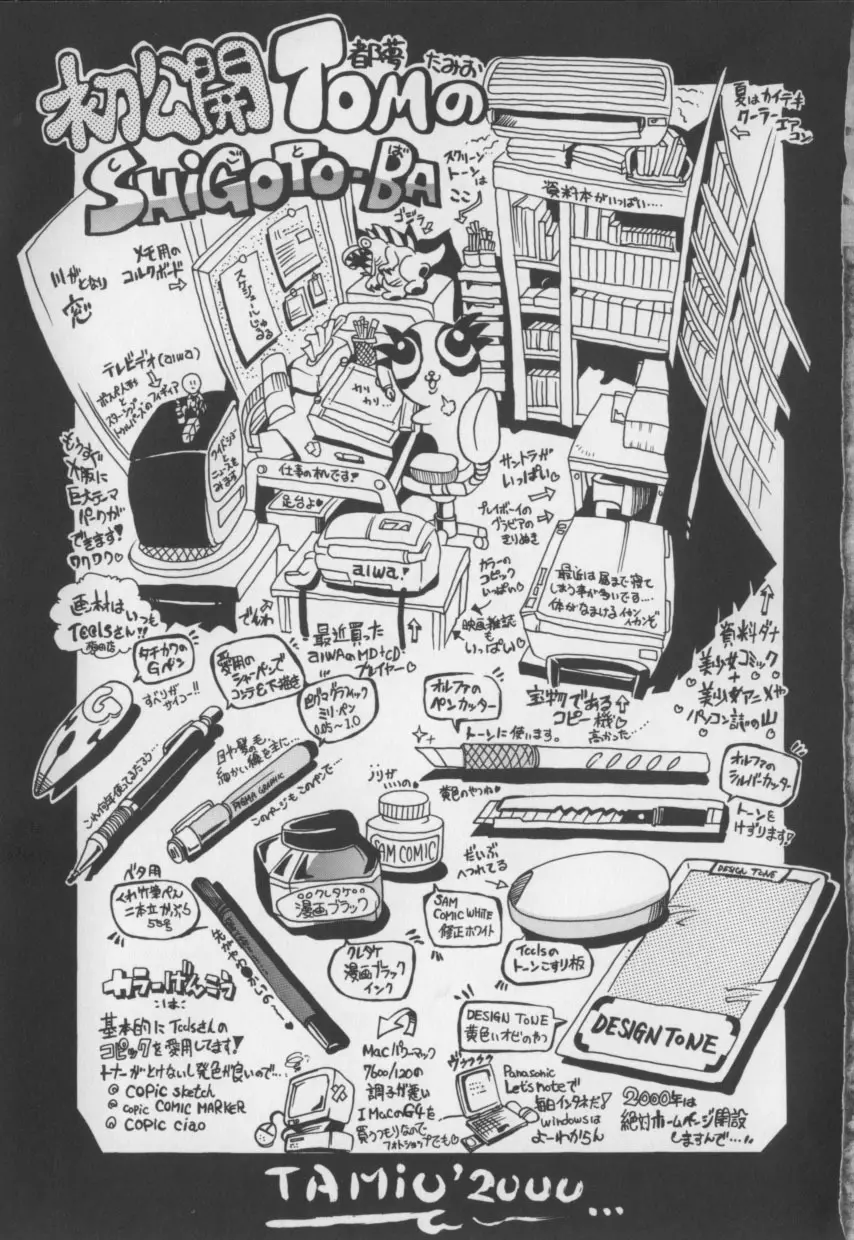 初公開 TOMの
都夢
たみお
SHiGOTO-BA
しごとば
夏はカイテキ
クーラーエア
コン
スクリーン
トーンは
ココ
資料本がいっぱい....
ゴジラ
メモ用の
コルクボード
川がとなり
窓
スケジュールじゅる
テレビデオ(aiwa)
カリ
カリ...
もうすぐ
大阪に
巨大テーマ
パークが
できます!
ワクワク♡
仕事の机です!
足台よ♡
サントラが
いっぱい♡
プレイボーイの
グラビアの
きりぬき
カラーの
コピック
いっぱい♡
映画雑誌
も
いっぱい♡
aiwa!
最近は昼まで寝て
しまう事が多いです...
体がなまけるイカン
イカンぞ
画材は
いつも
Toolsさん!!
でんわ
最近買った
aiwaのMD+CD
プレイヤー♡
宝物である
コピー機♡
高かった......
資料ダナ
美少女コミック
+
美少女アニメや
パソコン誌の山
タチカワの
Gペン
すべりが
サイコー!!
愛用の
シャーペンで
コンテも下描き
ミリペン
0.05〜1.0
目や髪の毛
細かい線を主に...
PIGMA GRAPHIC
このページもこのペンで...
オルファの
ペンカッター
トーンに使います。
黄色のやつね♡
オルファの
シルバーカッター
トーンを
けずります!
ノリが
いいの♡
SAM COMIC
SAM
COMIC WHITE
修正ホワイト
クレタケ
漫画ブラック
クレタケ
漫画ブラック
インク
だいぶ
へつれてる
Toolsの
トーンこすり板
ベタ用
くれ竹筆ぺん
二本立かぶら
55号
DESIGN TONE
DESIGN TONE
DESIGN TONE
黄色いオビのやつ
カラーげんこう
は
基本的にToolsさんの
コピックを愛用してます!
トナーがとけないし発色が良いので...
@ COPIC sketch
@ COPIC COMIC MARKER
@ COPIC ciao
Macパワーマック
7600/120の
調子が悪い
I MacかG4を
買うつもりなので
フォトショップでも♡
Panasonic
Let's noteで
毎日インタネだ!
windowsは
よーわからん
2000年は
絶対ホームページ開設
しますんで...
TAMiO '2000...